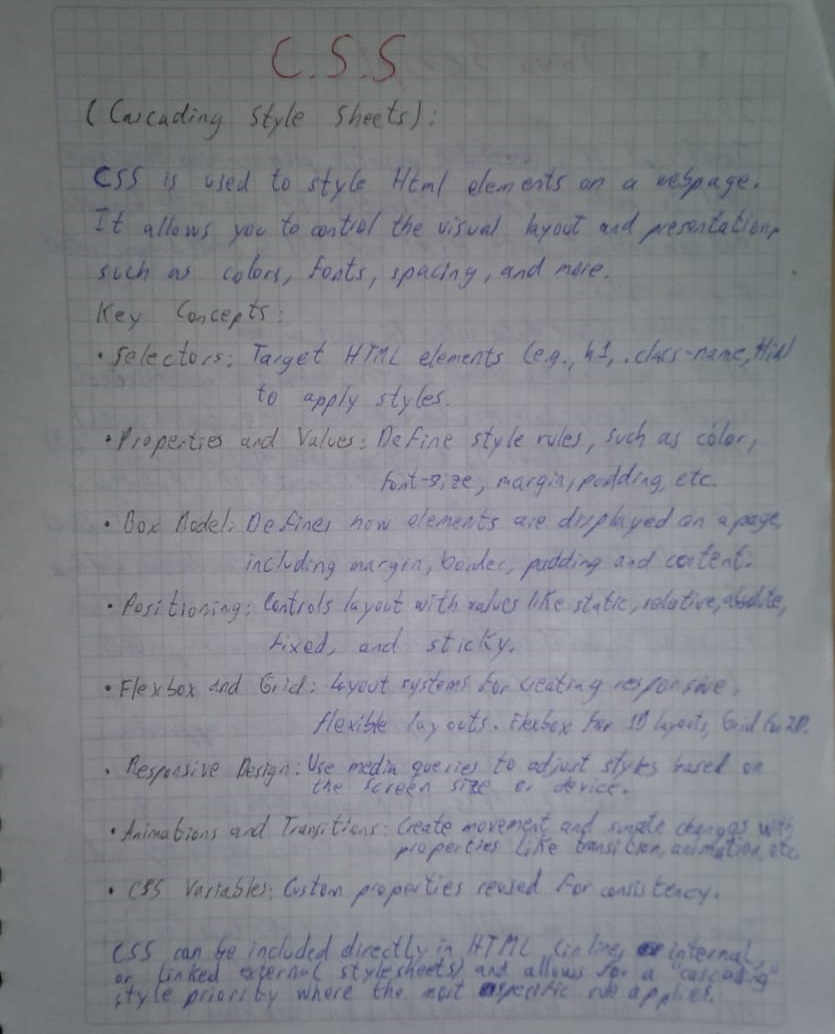 C.S.S
(Cascading Style Sheets):
CSS is used to style Html elements on a webpage.
It allows you to control the visual layout and presentation,
such as colors, fonts, spacing, and more.
Key Concepts:
• Selectors: Target HTML elements (e.g., h1, .class-name,
to apply styles.
• Properties and Values: Define style rules, such as color,
font-size, margin, padding, etc.
• Box Model: Defines how elements are displayed on a page,
including margin, border, padding and content.
• Positioning: Controls layout with values like static, relative, absolute,
fixed, and sticky.
• Flexbox and Grid: Layout systems for creating responsive,
flexible layouts. Flexbox for 1D layouts, Grid for 2D.
• Responsive Design: Use media queries to adjust styles based on
the screen size or device.
• Animations and Transitions: Create movement and changes with
properties like transition, animation, etc
• CSS Variables: Custom properties reused for consistency.
CSS can be included directly in HTML (inline, internal,
or linked external stylesheets) and allows for a "cascading"
style priority where the most specific rule applies.